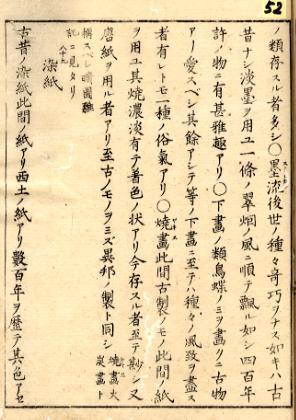 52
ノ類存スル者多シ〇墨流後世ノ種々奇巧ヲナス如キハ古
昔ナシ淡墨ヲ用ユ一條ノ翠烟ノ風ニ順テ飄ル如シ四百年
許ノ物ニ有甚雅趣アリ〇下畫ノ類鳥蝶ノミヲ畫クニ古物
アリ愛スベシ其餘アシデ等ノ下畫ニ至テハ種々ノ風致ヲ盡ス
者有レトモ一種ノ俗氣アリ〇燒畫此間古製ノモノ此間ノ紙
ヲ用ユ其燒濃淡有テ着色ノ状アリ今存スル者至テ尠シ又
唐紙ヲ用ル者アリ至古ノモノヲミズ異邦ノ製ト同シ
燒畫火
炭畫ト
稱スベシ
記ニ見タリ
染紙
古昔ノ染紙此間ノ紙アリ西土ノ紙アリ數百年ヲ歴テ其色アセ